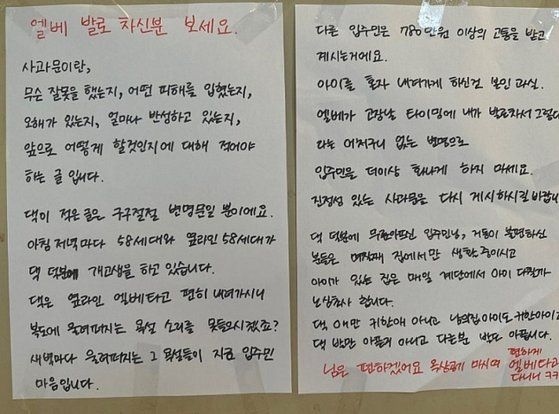 엘베 발로 차신분 보세요.
사과문이란,
무슨 잘못을 했는지, 어떤 피해를 입혔는지,
오해가 있는지, 얼마나 반성하고 있는지,
앞으로 어떻게 할것인지에 대해 적어야
하는 글 입니다.
댁이 적은 글은 구구절절 변명문일 뿐이에요.
아침 저녁마다 58세대와 옆라인 58세대가
댁 덕분에 개고생을 하고 있습니다.
댁은 옆라인 엘베타고 편히 내려가시니
복도에 울려퍼지는 욕설 소리를 못들으시겠죠?
새벽마다 울려퍼지는 그 욕설들이 지금 입주민
마음입니다.
다른 입주민은 780만원 이상의 고통을 받고
계시는거에요.
아이를 혼자 내려가게 하신건 본인 과실.
엘베가 고장날 타이밍에 내가 발로차서 그렇다
라는 어처구니 없는 변명으로
입주민을 더이상 화나게 하지 마세요.
진정성 있는 사과문을 다시 게시하시길 바랍니다
댁 덕분에 무릎아프신 입주민님, 거동이 불편하신
분들은 며칠째 집에서만 생활 중이시고
아이가 있는 집은 매일 계단에서 아이 다칠까
노심초사 합니다.
댁 애만 귀한애 아니고 남의집 아이도 귀한아이고
댁 발만 아픈게 아니고 다른분 발도 아픕니다.
님은 편하겠어요 옥상공기 마시며 편하게
엘베타고
다니니 ㅋㅋ